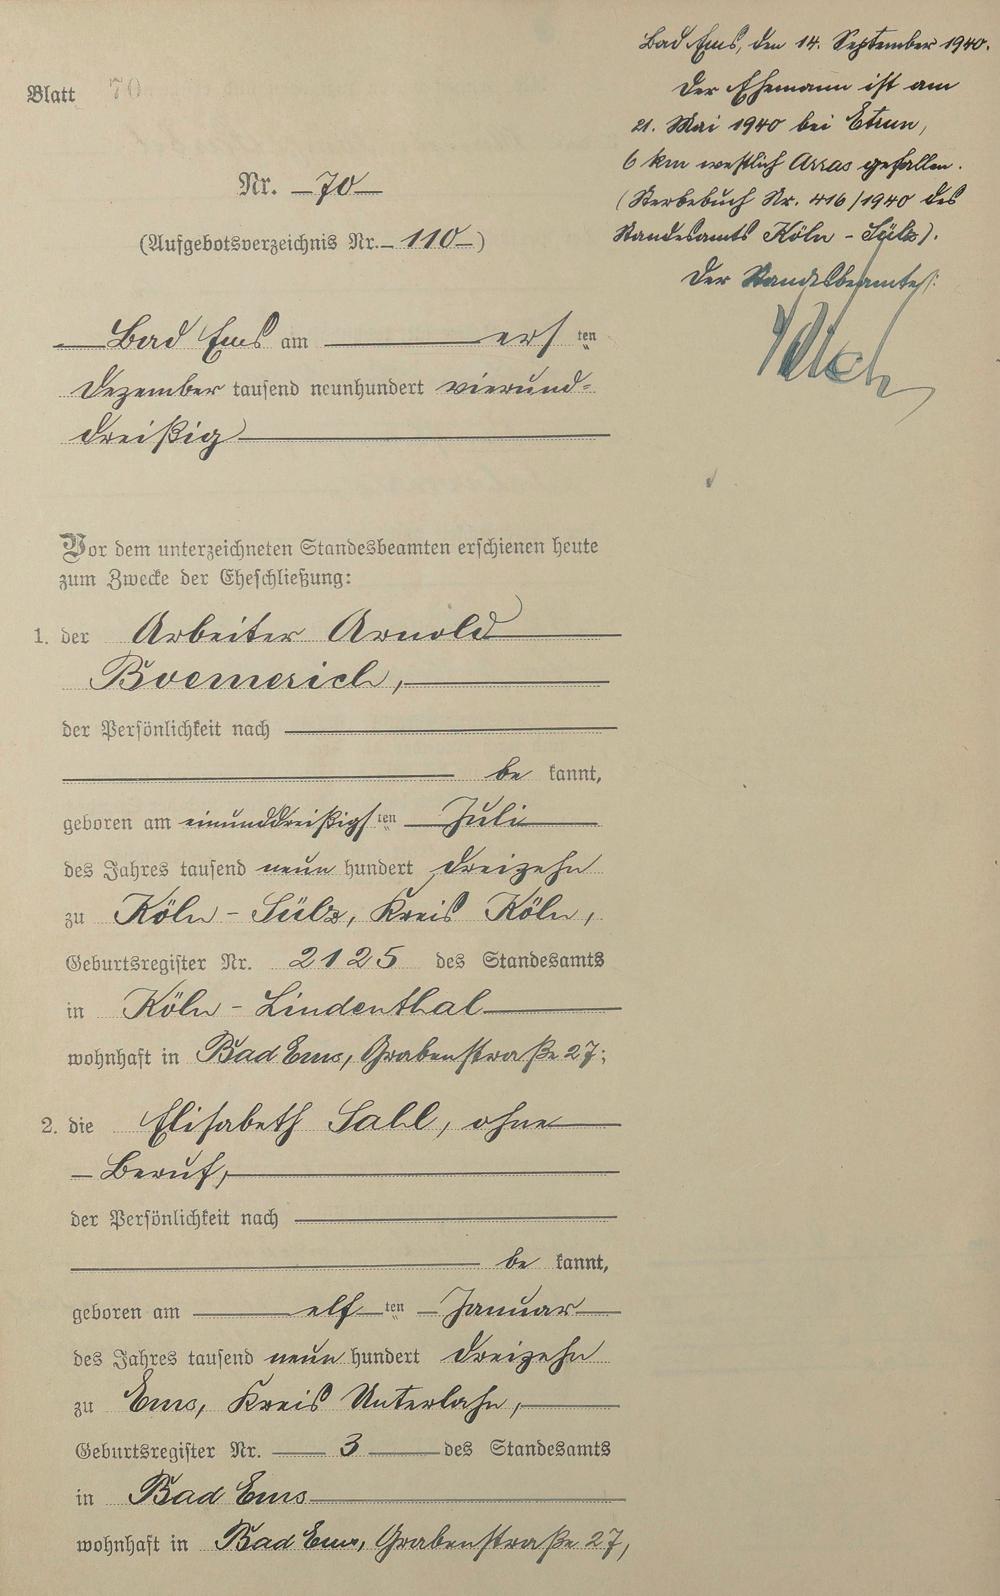 Blatt 70
Nr. 70
(Aufgebotsverzeichnis Nr. 110)
Bad Ems am ersten
Dezember tausend neunhundert vierund-
dreißig
Vor dem unterzeichneten Standesbeamten erschienen heute
zum Zwecke der Eheschließung:
1. der Arbeiter Arnold
Boemerich,
der Persönlichkeit nach
be kannt,
geboren am einunddreißigsten Juli
des Jahres tausend neun hundert dreizehn
zu Köln-Sülz, Kreis Köln,
Geburtsregister Nr. 2125 des Standesamts
in Köln-Lindenthal
wohnhaft in Bad Ems, Grabenstraße 27;
2. die Elisabeth Sall, ohne
Beruf,
der Persönlichkeit nach
be kannt,
geboren am elf ten Januar
des Jahres tausend neun hundert dreizehn
zu Ems, Kreis Unterlahn,
Geburtsregister Nr. 3 des Standesamts
in Bad Ems
wohnhaft in Bad Ems, Grabenstraße 27,
Bad Ems, den 14. September 1940.
Der Ehemann ist am
21. Mai 1940 bei Etrun,
6 km westlich Arras gefallen.
(Sterbebuch Nr. 416/1940 des
Standesamts Köln-Sülz).
Der Standesbeamte: